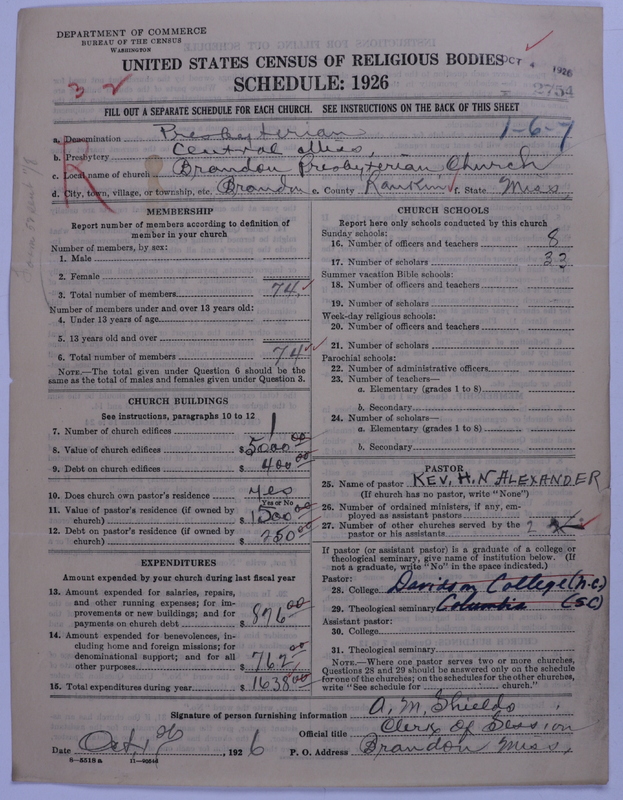 DEPARTMENT OF COMMERCE
BUREAU OF THE CENSUS
WASHINGTON
UNITED STATES CENSUS OF RELIGIOUS BODIES
SCHEDULE: 1926
OCT 4 1926
2754
3 2
FILL OUT A SEPARATE SCHEDULE FOR EACH CHURCH. SEE INSTRUCTIONS ON THE BACK OF THIS SHEET
1-6-7
R
a. Denomination Presbyterian
b. Presbytery Central Miss,
c. Local name of church Brandon Presbyterian Church
d. City, town, village, or township, etc. Brandon e. County Rankin f. State Miss,
MEMBERSHIP
Report number of members according to definition of
member in your church
Number of members, by sex:
1. Male
2. Female
3. Total number of members 74
Number of members under and over 13 years old:
4. Under 13 years of age
5. 13 years old and over
6. Total number of members 74
NOTE.—The total given under Question 6 should be the
same as the total of males and females given under Question 3.
CHURCH BUILDINGS
See instructions, paragraphs 10 to 12
7. Number of church edifices 1
8. Value of church edifices $5000.00
9. Debt on church edifices $400.00
10. Does church own pastor's residence yes
Yes or No
11. Value of pastor's residence (if owned by
church) $1500.00
12. Debt on pastor's residence (if owned by
church) $250.00
EXPENDITURES
Amount expended by your church during last fiscal year
13. Amount expended for salaries, repairs,
and other running expenses; for im-
provements or new buildings; and for
payments on church debt $876.00
14. Amount expended for benevolences, in-
cluding home and foreign missions; for
denominational support; and for all
other purposes $762.00
15. Total expenditures during year $1638.00
CHURCH SCHOOLS
Report here only schools conducted by this church
Sunday schools:
16. Number of officers and teachers 8
17. Number of scholars 33
Summer vacation Bible schools:
18. Number of officers and teachers
19. Number of scholars
Week-day religious schools:
20. Number of officers and teachers
21. Number of scholars
Parochial schools:
22. Number of administrative officers
23. Number of teachers—
a. Elementary (grades 1 to 8)
b. Secondary
24. Number of scholars—
a. Elementary (grades 1 to 8)
b. Secondary
PASTOR
25. Name of pastor REV. H. N ALEXANDER
(If church has no pastor, write "None")
26. Number of ordained ministers, if any, em-
ployed as assistant pastors
27. Number of other churches served by the
pastor or his assistants 2
If pastor (or assistant pastor) is a graduate of a college or
theological seminary, give name of institution below. (If
not a graduate, write "No" in the space indicated.)
Pastor:
28. College Davidson College (N.C.)
29. Theological seminary Columbia (S.C)
Assistant pastor:
30. College
31. Theological seminary
NOTE.—Where one pastor serves two or more churches,
Questions 28 and 29 should be answered only on the schedule
for one of the churches; on the schedules for the other churches,
write "See schedule for church."
Signature of person furnishing information A. M. Shields
Official title Clerk of Session
Date Oct, 1926 P. O. Address Brandon Miss,
8—5518a 11—90546